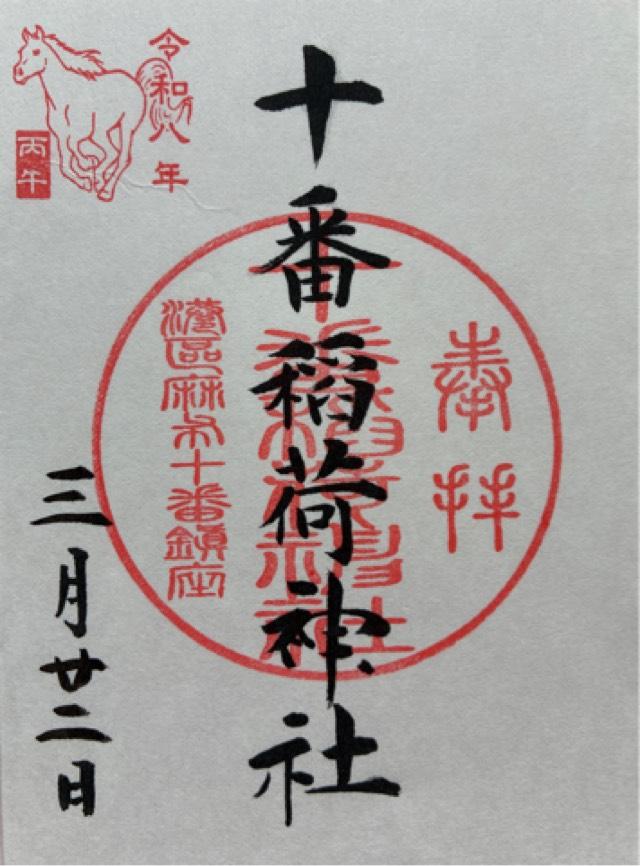 奉拝
十番稲荷神社
十番稲荷神社
港區麻布十番鎮座
令和八年
丙午
三月廿二日